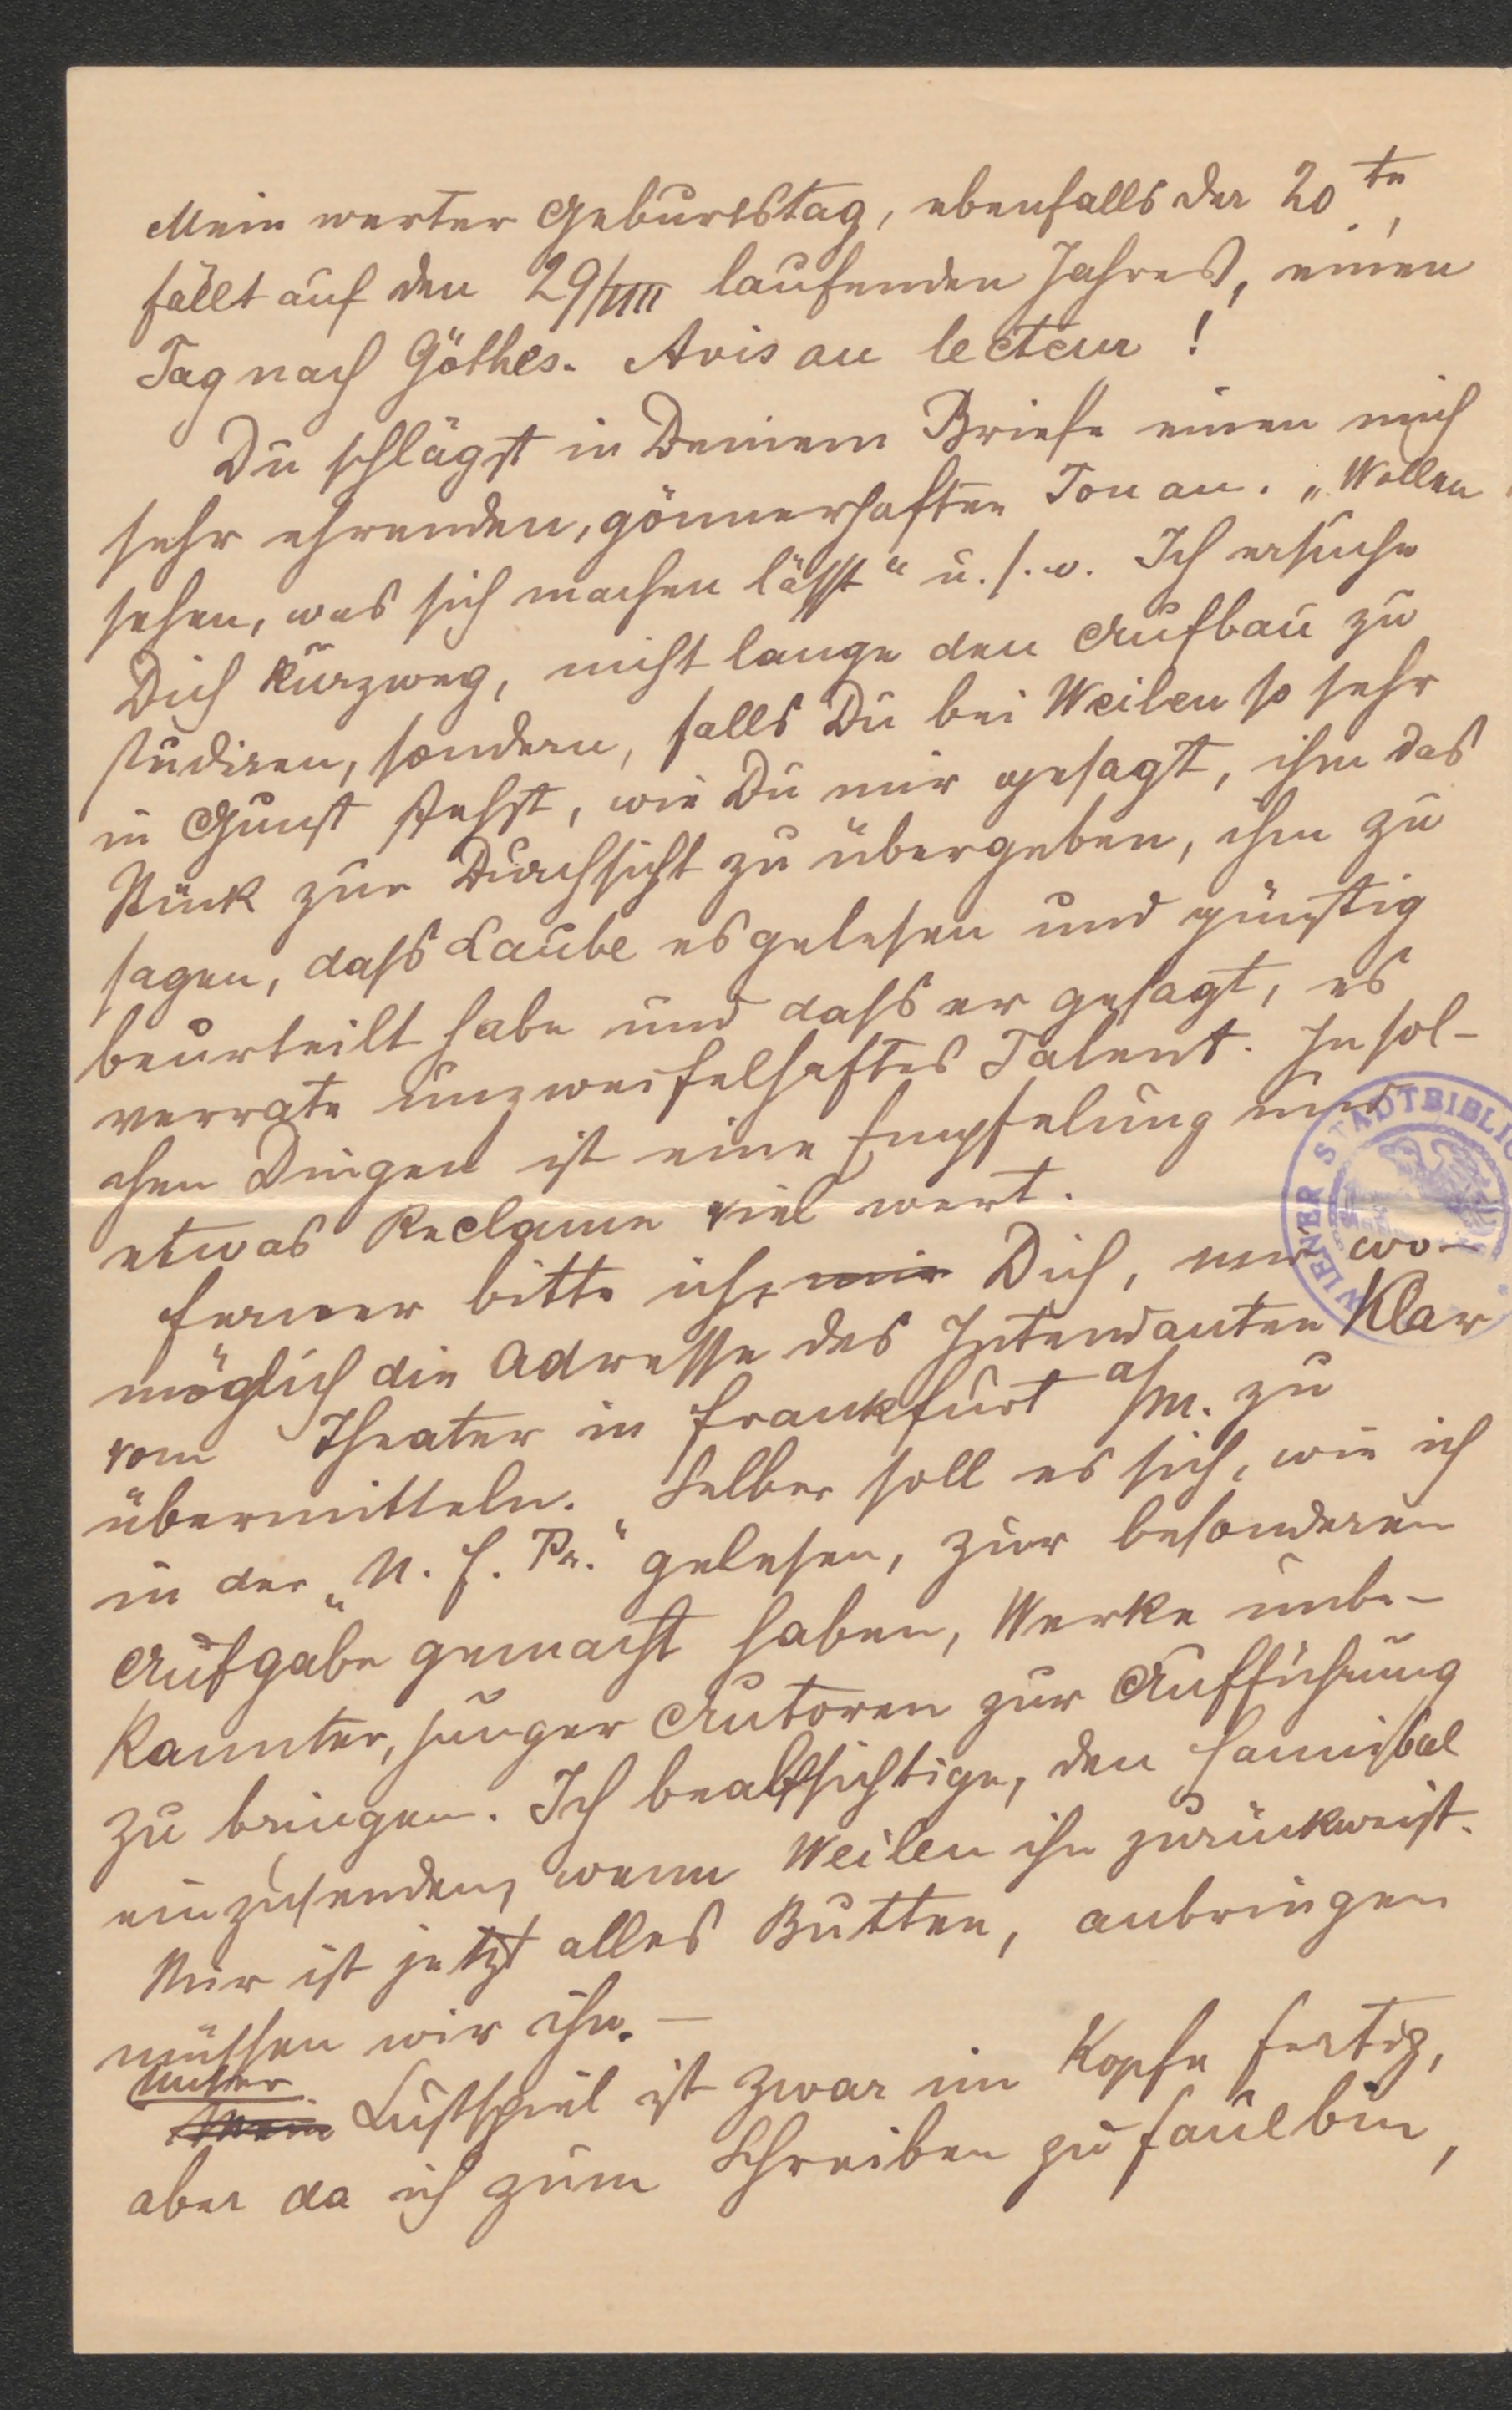 Mein werter Geburtstag, ebenfalls der 20te,
fällt auf den 29/VIII laufenden Jahres, einen
Tag nach Göthes. Avis au lecteur!
Du schlägst in Deinem Briefe einen mich
sehr ehrenden, gönnerhaften Ton an. „Wollen
sehen, was sich machen lässt“ u. s. w. Ich ersuche
Dich kurzweg, nicht lange den Aufbau zu
studiren, sondern, falls Du bei Weilen so sehr
in Gunst stehst, wie Du mir gesagt, ihm das
Stück zur Durchsicht zu übergeben, ihm zu
sagen, dass Laube es gelesen und günstig
beurteilt habe und dass er gesagt, es
verrate unzweifelhaftes Talent. In sol-
chen Dingen ist eine Empfelung und
etwas Reclame viel wert.
Ferner bitte ich mir Dich, mir wo-
möglich die Adresse des Intendanten Klar
vom Theater in Frankfurt a/m. zu
übermitteln. Selber soll es sich, wie ich
in der „N. f. Pr.“ gelesen, zur besonderen
Aufgabe gemacht haben, Werke unbe-
kannter, junger Autoren zur Aufführung
zu bringen. Ich beabsichtige, den Hannibal
einzusenden, wenn Weilen ihn zurückweist.
Mir ist jetzt alles Butten, anbringen
müssen wir ihn. –
Unser
Mein Lustspiel ist zwar im Kopfe fertig,
aber da ich zum Schreiben zu faul bin,
WIENER STADTBIBLIO